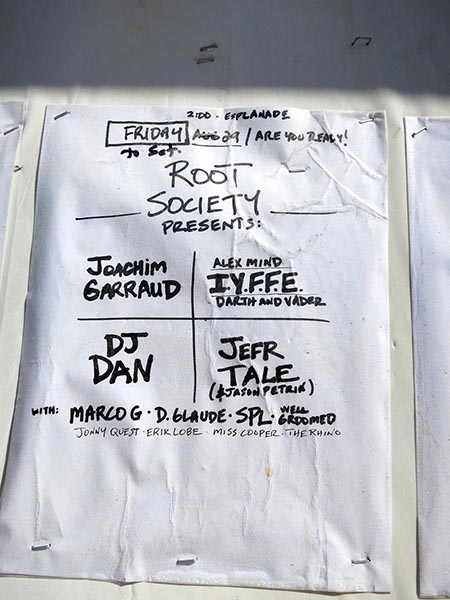 2:00 - ESPLANADE
FRIDAY AUG 29 / ARE YOU READY!
to Sat.
ROOT
SOCIETY
PRESENTS:
JOACHIM
GARRAUD
ALEX MIND
I.Y.F.F.E.
DARTH AND VADER
DJ
DAN
JEFR
TALE
(& JASON PETRIN)
WITH: MARCO G · D. GLAUDE · SPL · WELL GROOMED
JONNY QUEST · ERIK LOBE · MISS COOPER · THE RHINO